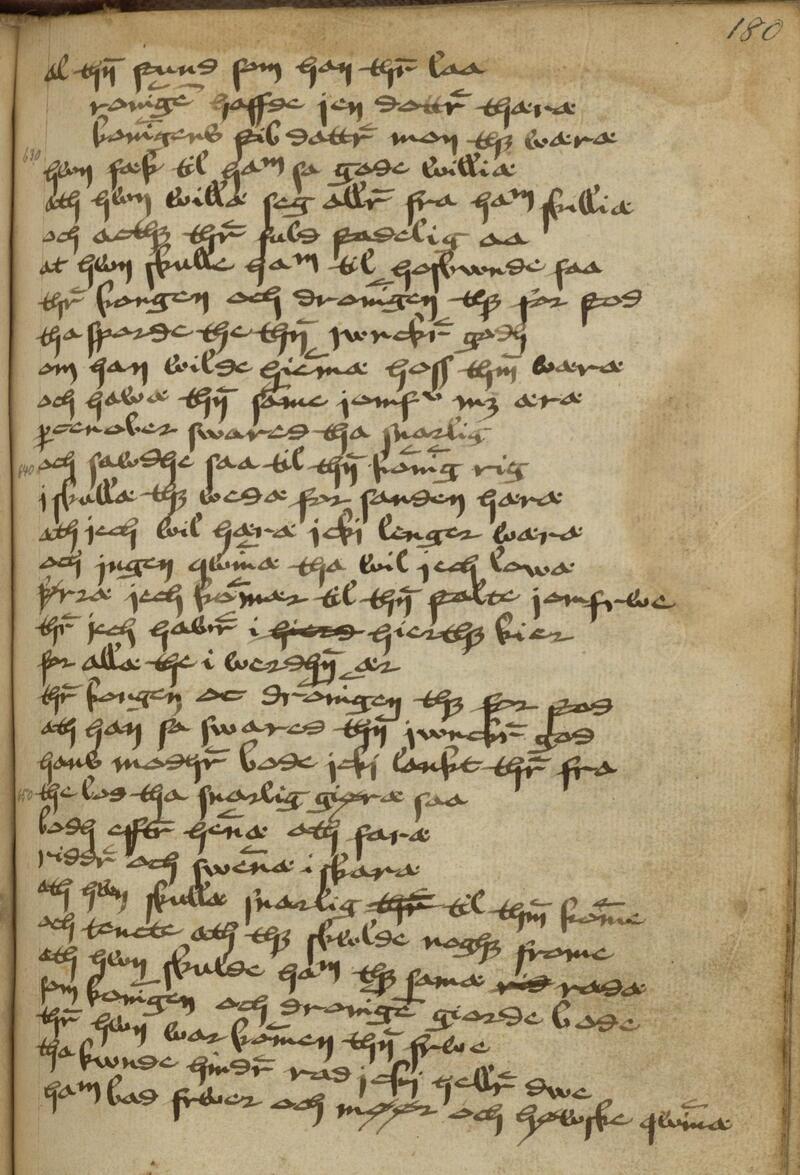 180
al thn̄ stund som han thr̄ laa
konīgē haffde jen dottr̄ thæræ
konīgens sib dottr̄ mon thꝫ wæræ
630
hwn fæk til hām sa gode williæ
ath hwn willæ seg allr̄ fra hām skilliæ
och acthꝫ thr̄ fuld stadelig aa
at hwn skulle hām til hosbwnde faa
thr̄ kongen och dronīgen thꝫ for stod
tha sporde the thn̄ jwnckr̄ godh
om han wilde hiēmæ hoss thm̄ wæræ
och hawæ thn̄ sāme iomfv mꝫ æræ
ꝑtenober swared tha snarlig
640 och sawdhe saa til thn̄ konīg rig
i skullæ thꝫ wedæ for sanden hæræ
ath jech wil hæræ icki lenger wæræ
och jngen qwīnæ tha wil jech lowæ
førræ jech kōmær til thn̄ stalte jomfrwe
thr̄ jech hawr̄ i hierthꝫ kier
for allæ the i werdhn̄ ær
thr̄ kongen oc dronīgen thꝫ for stod
ath han sa swared thn̄ jwnckr̄ god
hans modhr̄ bode icki lankt thr̄ fra
650 the lod tha snarlig giøræ saa
bodh efftr̄ hēnæ ath faræ
riddr̄ och swēnæ i skaræ
ath hwn skullæ snarlig thr̄ til thm̄ kōme
och tencte ath thꝫ skwlde noghꝫ frome
ath hwn skulde hām thꝫ samæ rid radæ
som konīgen och dronīgē giorde bode
thr̄ hwn war kōmen thn̄ frwe
tha kwnde hindr̄ rad icki hellr̄ dwe
hām bad frwer och møør och høwske qwīnæ